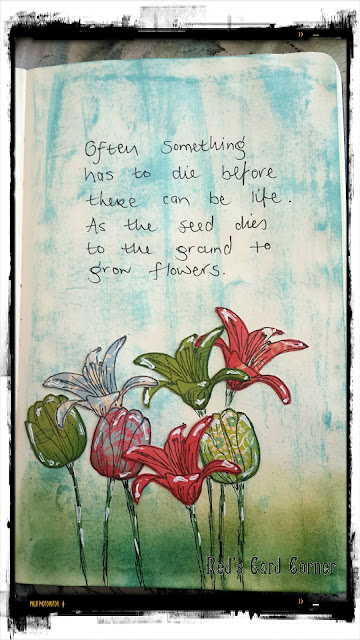 Often something
has to die before
there can be life.
As the seed dies
to the ground to
grow flowers.
Red's Card Corner